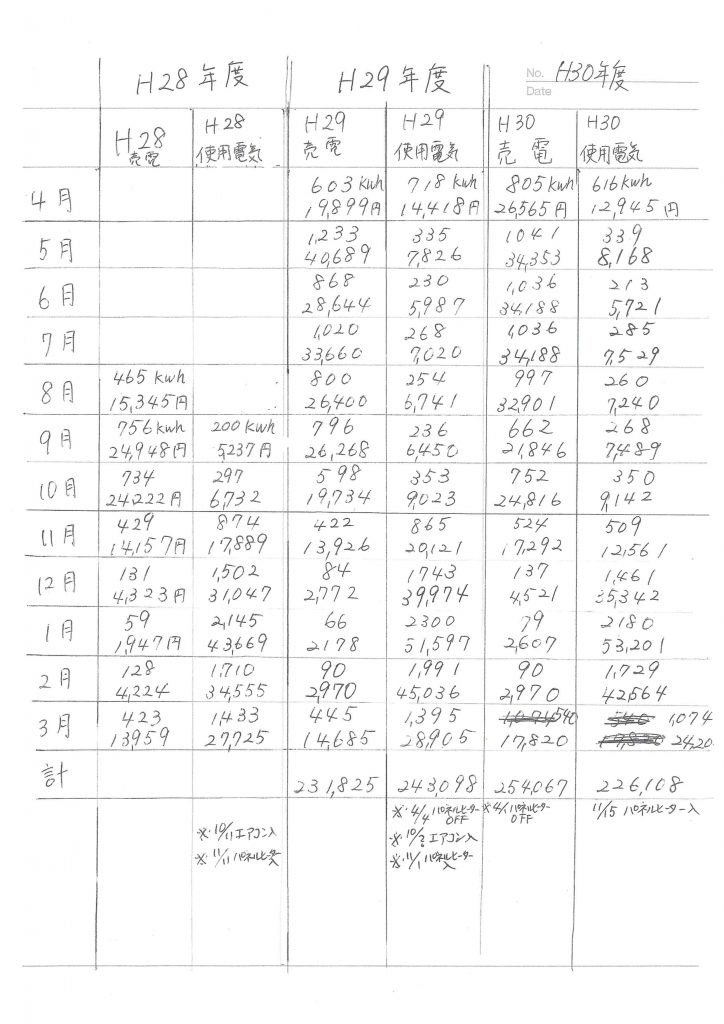 No. H30年度
Date
H28年度 H29年度
H28 売電 H28 使用電気 H29 売電 H29 使用電気 H30 売電 H30 使用電気
4月 603kwh 718kwh 805kwh 616kwh
19,899円 14,418円 26,565円 12,945円
5月 1,233 335 1041 339
40,689 7,826 34,353 8,168
6月 868 230 1,036 213
28,644 5,987 34,188 5,721
7月 1,020 268 1,036 285
33,660 7,020 34,188 7,529
8月 465kwh 800 254 997 260
15,345円 26,400 6,741 32,901 7,240
9月 756kwh 200kwh 796 236 662 268
24,948円 5,237円 26,268 6,450 21,846 7,489
10月 734 297 598 353 752 350
24,222円 6,732 19,734 9,023 24,816 9,142
11月 429 874 422 865 524 509
14,157円 17,889 13,926 20,121 17,292 12,561
12月 131 1,502 84 1743 137 1,461
4,323円 31,047 2,772 39,974 4,521 35,342
1月 59 2,145 66 2300 79 2180
1,947円 43,669 2178 51,597 2,607 53,201
2月 128 1,710 90 1,991 90 1,729
4,224 34,555 2,970 45,036 2,970 42,564
3月 423 1,433 445 1,395 540 1,074
13,959 27,725 14,685 28,905 17,820 24,20
計 231,825 243,098 254,067 226,108
※10/11エアコン入
※11/11パネルヒーター入
※4/4パネルヒーターOFF
エアコン入
※11/1パネルヒーター入
※4/1パネルヒーターOFF
11/15パネルヒーター入